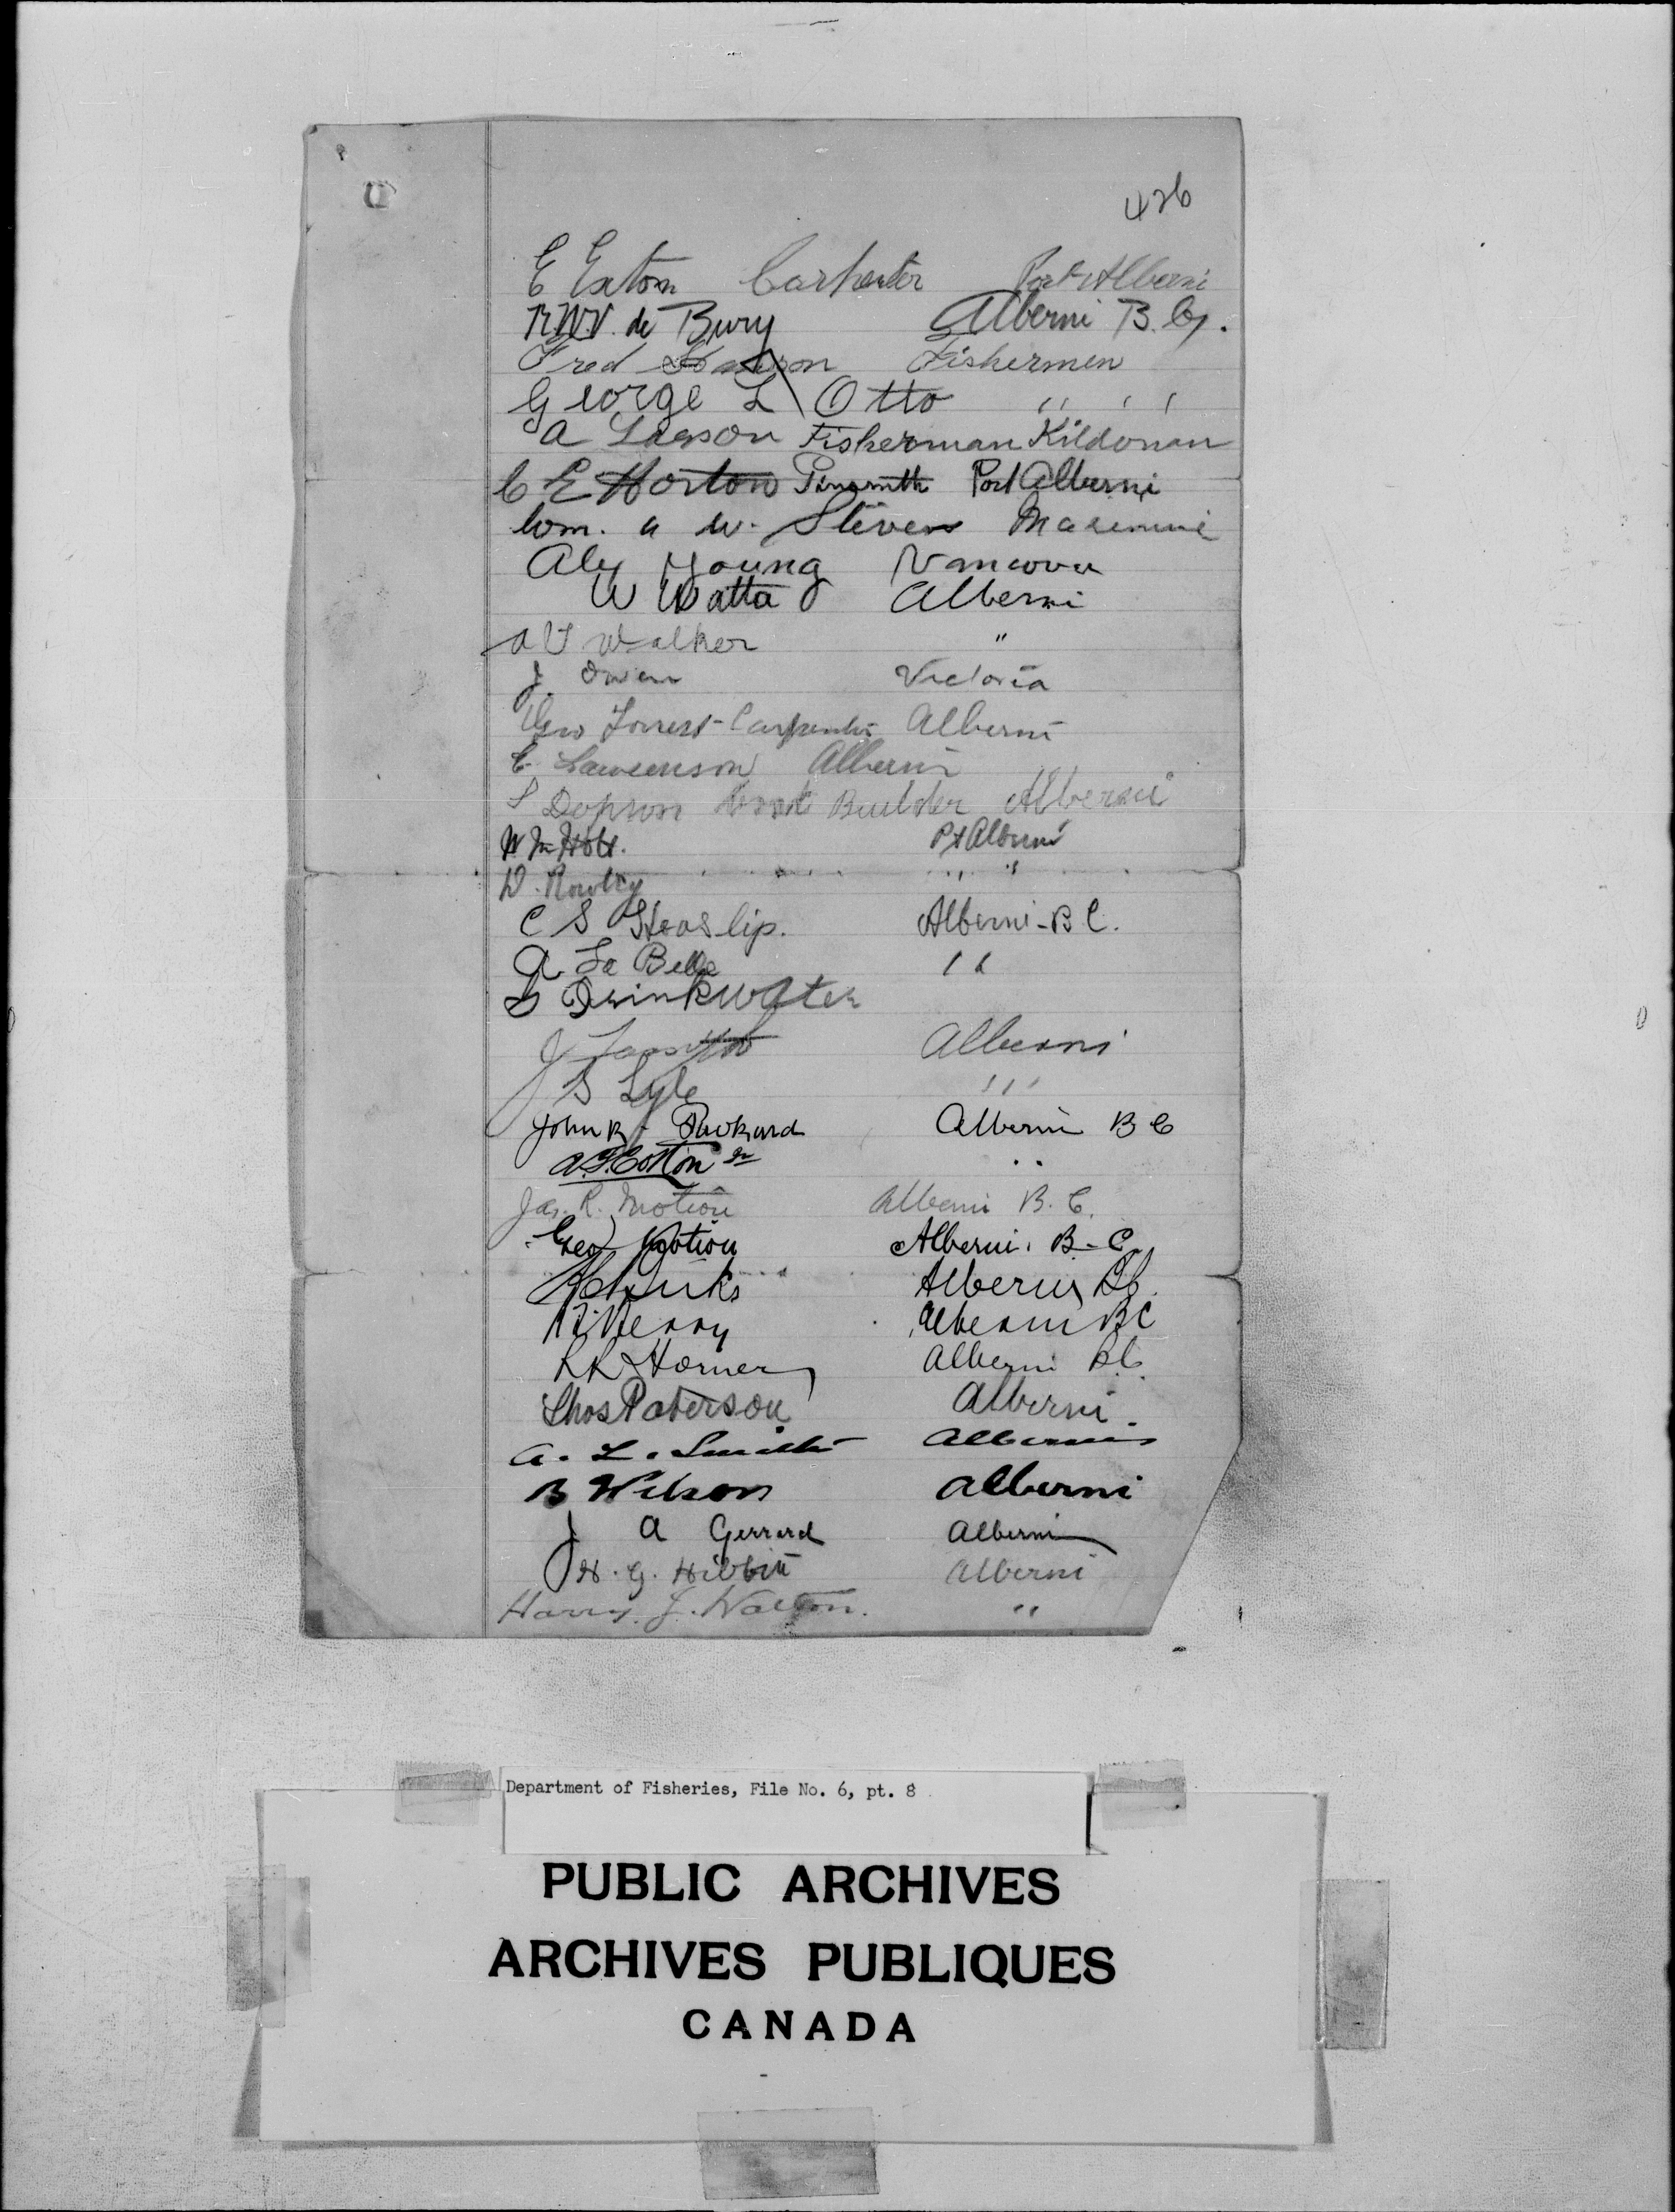 426
E Exton Carpenter Port Alberni
R.W.V. de Bury Alberni B.C.
Fred Fishermen
George L Otto ,, , ,
A Larson Fisherman Kildonan
C E Horton Tinsmith Port Alberni
Com. a w. Stevens
Alex Young Vancover
W Watta Alberni
A V Walker "
J. Owen Victoria
Geo Forrest - Carpenter Alberni
C. Lawrenson Alberni
S Dopson Boat Builder Alberni
Wm Holt. Pt Alberni
D. Rowley ,, "
C S Heaslip. Alberni - B C.
A. La Belle ,,
D Drinkwater
J Alberni
S Lyle ,,,
John R. Pickard Alberni B C
A.F. Cotton Jr ..
Jas. R. Motion Alberni B. C.
Geo Motion Alberni. B-C.
Alberni BC.
Merry Alberni BC
R R Horner Alberni B.C.
Thos Paterson Alberni.
A. L. Smith Alberni
B Wilson alberni
J A Gerrard Alberni
H. G. Hibbin Alberni
Harry. J. Walton. "
Department of Fisheries, File No. 6, pt. 8
PUBLIC ARCHIVES
ARCHIVES PUBLIQUES
CANADA